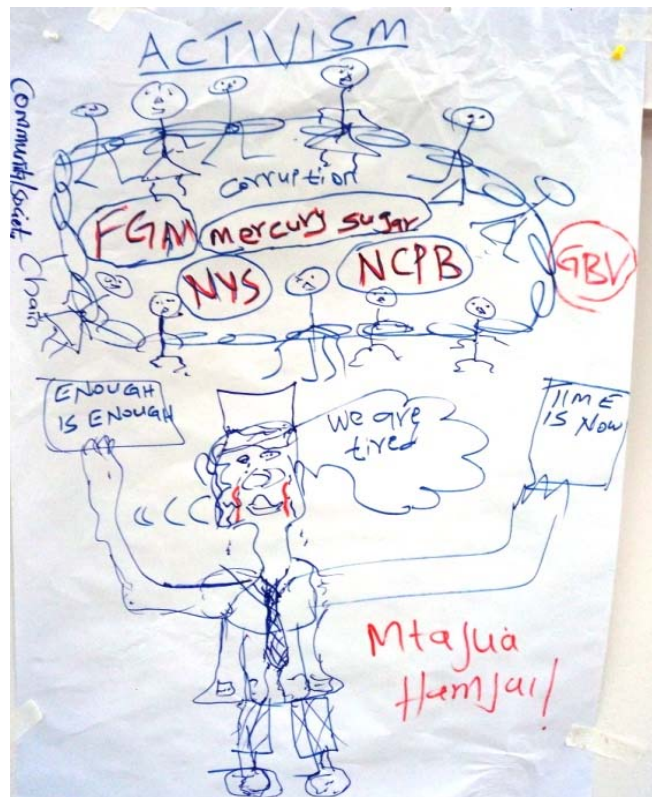 ACTIVISM
Community/societ
Chain
corruption
FGM
mercury sugar
NYS
NCPB
GBV
ENOUGH
IS ENOUGH
We are
tired
TIME
IS NOW
Mtajua
Hamjui!